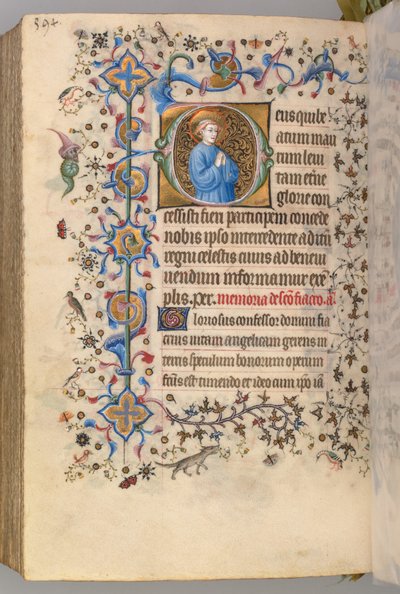 394
eus qui be
atum mau
rum leui
tam et̄ne
glorie con
cessisti fieri participem concede
nobis ipso intercedente aditū
regni celestis cuius ad benei
uendum informamur exē
plis. per. memoria de sc̄o fiacro. a.
loriosus confessor domini fia
crius uitam angelicam gerens in
terris speculum bonorum operum
factus est timendo et ideo cum xp̄o iā